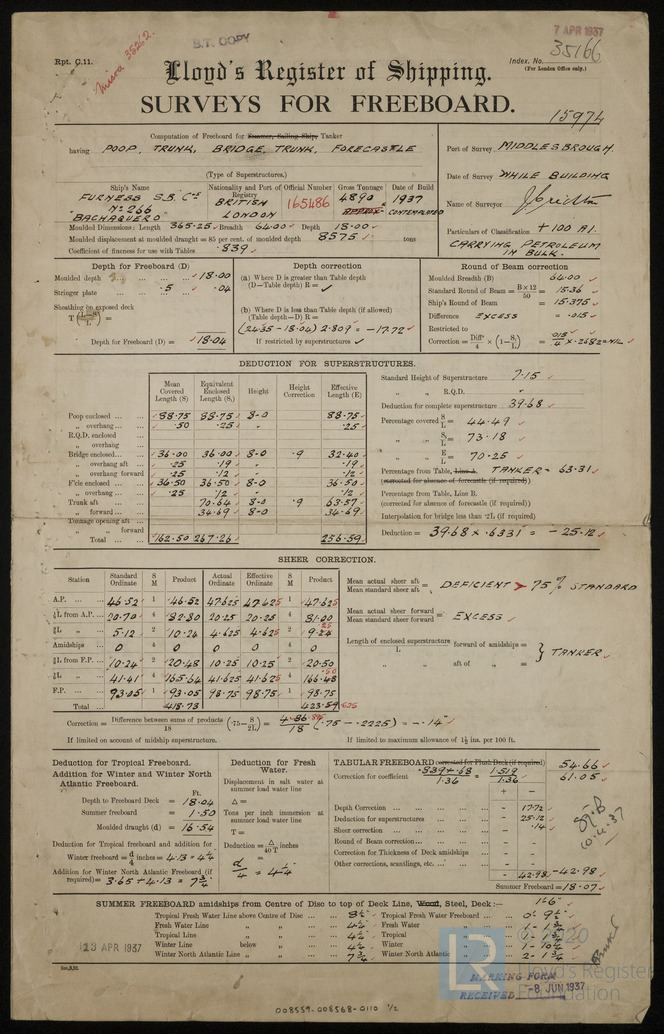 Rpt. C.11.
B.T. COPY
7 APR 1937
Index. No. 35166
(For London Office only.)
Lloyd's Register of Shipping.
SURVEYS FOR FREEBOARD.
15974
Computation of Freeboard for Steamer, Sailing Ship, Tanker
having POOP, TRUNK, BRIDGE, TRUNK, FORECASTLE
(Type of Superstructures.)
Port of Survey MIDDLESBROUGH.
Date of Survey WHILE BUILDING
Name of Surveyor
Particulars of Classification +100 A1.
CARRYING PETROLEUM IN BULK.
Ship's Name Nationality and Port of Registry Official Number Gross Tonnage Date of Build
FURNESS S.B. Co's No 266 "BACHAQUERO" BRITISH LONDON 165486 4890 APPROX. 1937 CONTEMPLATED
Moulded Dimensions: Length 365.25 Breadth 64.00 Depth 18.00
Moulded displacement at moulded draught = 85 per cent. of moulded depth 8575 tons
Coefficient of fineness for use with Tables .839
Depth for Freeboard (D)
Moulded depth ... 18.00
Stringer plate ... .5 .04
Sheathing on exposed deck
T (L-S/L) =
Depth for Freeboard (D) = 18.04
Depth correction
(a) Where D is greater than Table depth
(D—Table depth) R =
(b) Where D is less than Table depth (if allowed)
(Table depth—D) R =
(24.35 - 18.04) 2.809 = -17.72
If restricted by superstructures
Round of Beam correction
Moulded Breadth (B) 64.00
Standard Round of Beam = B×12/50 = 15.36
Ship's Round of Beam = 15.375
Difference EXCESS = .015
Restricted to
Correction = Diffce/4 × (1-S₁/L) = .015/4 × .2682 = NIL
DEDUCTION FOR SUPERSTRUCTURES.
Mean Covered Length (S) Equivalent Enclosed Length (S₁) Height Height Correction Effective Length (E)
Poop enclosed ... 88.75 88.75 8-0 88.75
„ overhang ... .50 .25 " .25
R.Q.D. enclosed
„ overhang
Bridge enclosed ... 36.00 36.00 8.0 .9 32.40
„ overhang aft .25 .19 " .19
„ overhang forward .25 .12 " .12
F'cle enclosed ... 36.50 36.50 8-0 36.50
„ overhang ... .25 .12 " .12
Trunk aft 70.64 8-0 .9 63.57
„ forward ... 34.69 8-0 34.69
Tonnage opening aft ...
„ „ forward
Total ... 162.50 267.26 256.59
Standard Height of Superstructure 7.15
„ „ R.Q.D. "
Deduction for complete superstructure 39.68
Percentage covered S/L = 44.49
„ „ S₁/L = 73.18
„ „ E/L = 70.25
Percentage from Table, Line A. TANKER = 63.31
(corrected for absence of forecastle (if required))
Percentage from Table, Line B.
(corrected for absence of forecastle (if required))
Interpolation for bridge less than ·2L (if required)
Deduction = 39.68 × .6331 = - 25.12
SHEER CORRECTION.
Station Standard Ordinate S M Product Actual Ordinate Effective Ordinate S M Product
A.P. ... 46.52 1 46.52 47.625 47.625 1 47.625
⅙L from A.P. ... 20.70 4 82.80 20.25 20.25 4 81.00
⅓L „ ... 5.12 2 10.24 4.625 4.625 2 9.25
Amidships ... 0 4 0 0 0 4 0
⅓L from F.P. ... 10.24 2 20.48 10.25 10.25 2 20.50
⅙L „ ... 41.41 4 165.64 41.625 41.625 4 166.50
F.P. ... 93.05 1 93.05 98.75 98.75 1 98.75
Total ... 418.73 423.59 .625
Mean actual sheer aft / Mean standard sheer aft = DEFICIENT > 75% STANDARD
Mean actual sheer forward / Mean standard sheer forward = EXCESS
Length of enclosed superstructure / L forward of amidships =
„ „ aft of „ = } TANKER
Correction = Difference between sums of products / 18 (·75 — S/2L) = 4.86 / 18 (.75 - .2225) = -.14
If limited on account of midship superstructure.
If limited to maximum allowance of 1½ ins. per 100 ft.
Deduction for Tropical Freeboard.
Addition for Winter and Winter North Atlantic Freeboard.
Ft.
Depth to Freeboard Deck = 18.04
Summer freeboard = 1.50
Moulded draught (d) = 16.54
Deduction for Tropical freeboard and addition for Winter freeboard = d/4 inches = 4.13 = 4¼
Addition for Winter North Atlantic Freeboard (if required) = 3.65 + 4.13 = 7¾
Deduction for Fresh Water.
Displacement in salt water at summer load water line
Δ =
Tons per inch immersion at summer load water line
T =
Deduction = Δ/40T inches
d/4 = 4¼
TABULAR FREEBOARD corrected for Flush Deck (if required) 54.66
Correction for coefficient .839 + .68 / 1.36 = 1.519 / 1.36 61.05
+ -
Depth Correction ... - 17.72
Deduction for superstructures ... - 25.12
Sheer correction ... - .14
Round of Beam correction ... -
Correction for Thickness of Deck amidships ... -
Other corrections, scantlings, etc. ... -
- 42.98 - 42.98
Summer Freeboard = 18.07
SUMMER FREEBOARD amidships from Centre of Disc to top of Deck Line, Wood, Steel, Deck:— 1'-6"
Tropical Fresh Water Line above Centre of Disc ... 8½" Tropical Fresh Water Freeboard ... 0'- 9½"
Fresh Water Line „ „ ... 4¼" Fresh Water „ ... 1'- 1¾"
Tropical Line „ „ ... 4¼" Tropical „ ... 1'- 1¾"
Winter Line below „ ... 4¼" Winter „ ... 1'- 10¼"
Winter North Atlantic Line „ „ ... 7¾" Winter North Atlantic „ ... 2'- 1¾"
23 APR 1937
MARKING FORM RECEIVED -8 JUN 1937
LR
© 2020
Lloyd's Register
Foundation
008559-008568-0110 ½